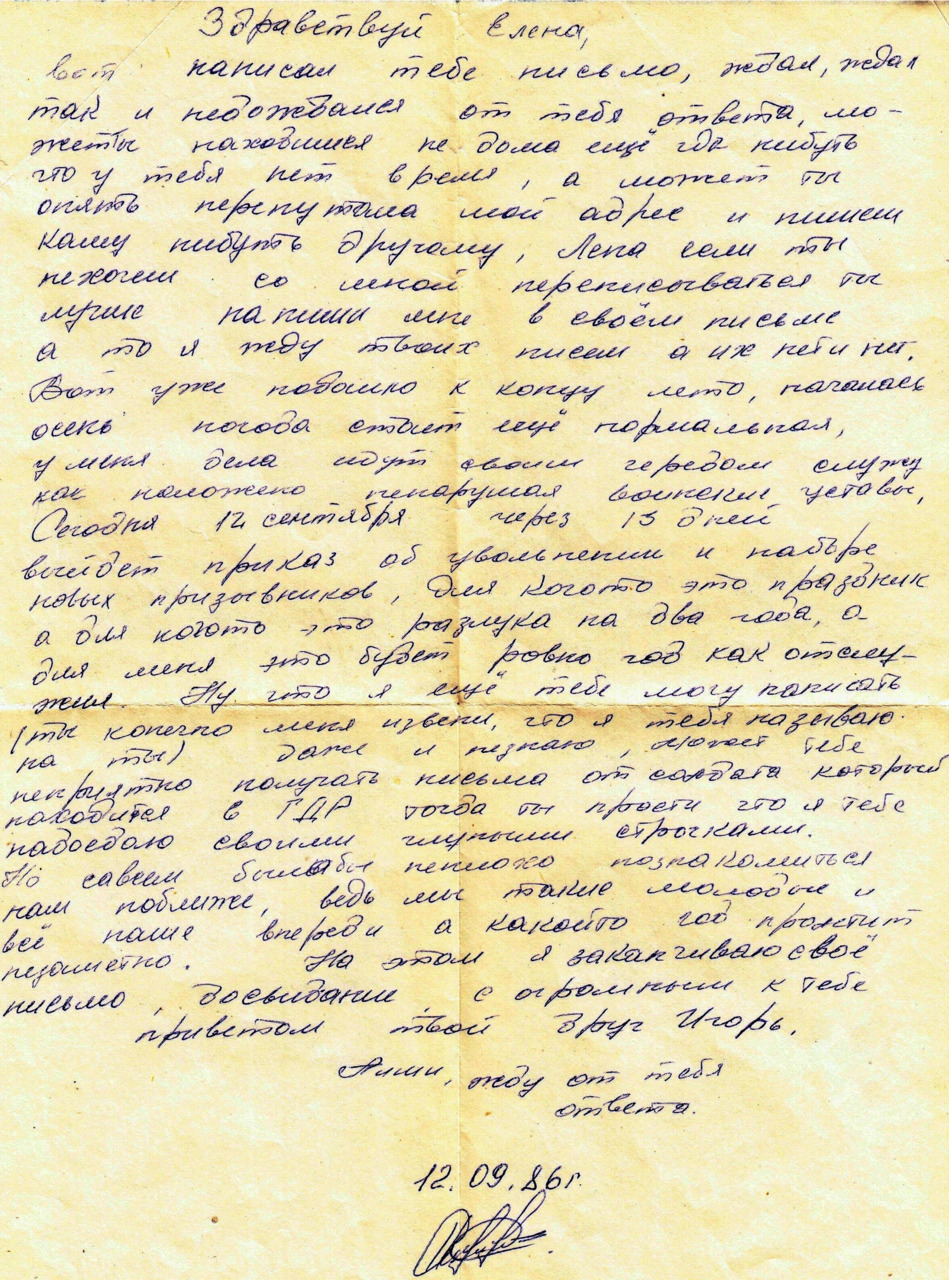 Здравствуй Елена,
вот написал тебе письмо, ждал, ждал
так и недождался от тебя ответа, мо-
жеты находишся не дома ещё где нибуть
что у тебя нет время, а может ты
опять перепутала мой адрес и пишеш
кому нибуть другому, Лена если ты
нехочеш со мной переписываться ты
лучше напиши мне в своём письме
а то я жду твоих писем а их нет и нет.
Вот уже подошло к концу лето, началась
осень погода стоит ещё нормальная,
у меня дела идут своим чередом служу
как положено ненарушая воинские уставы,
Сегодня 12 сентября через 13 дней
выйдет приказ об увольнении и наборе
новых призывников, для когото это праздник
а для когото это разлука на два года, а
для меня это будет ровно год как отслу-
жил. Ну что я ещё тебе могу написать
(ты конечно меня извени, что я тебя называю
на ты) даже и незнаю, тебе
неприятно получать письма от солдата который
находится в ГДР тогда ты прости что я тебе
надоедаю своими глупыми строчками.
Но савсем былобы неплохо познакомиться
нам поближе, ведь мы такие молодые и
всё наше впереди а какойто год пролетит
незаметно. На этом я заканчиваю своё
письмо, досвидание, с огромным к тебе
приветом твой друг Игорь.
жду от тебя
ответа.
12.09.86г.